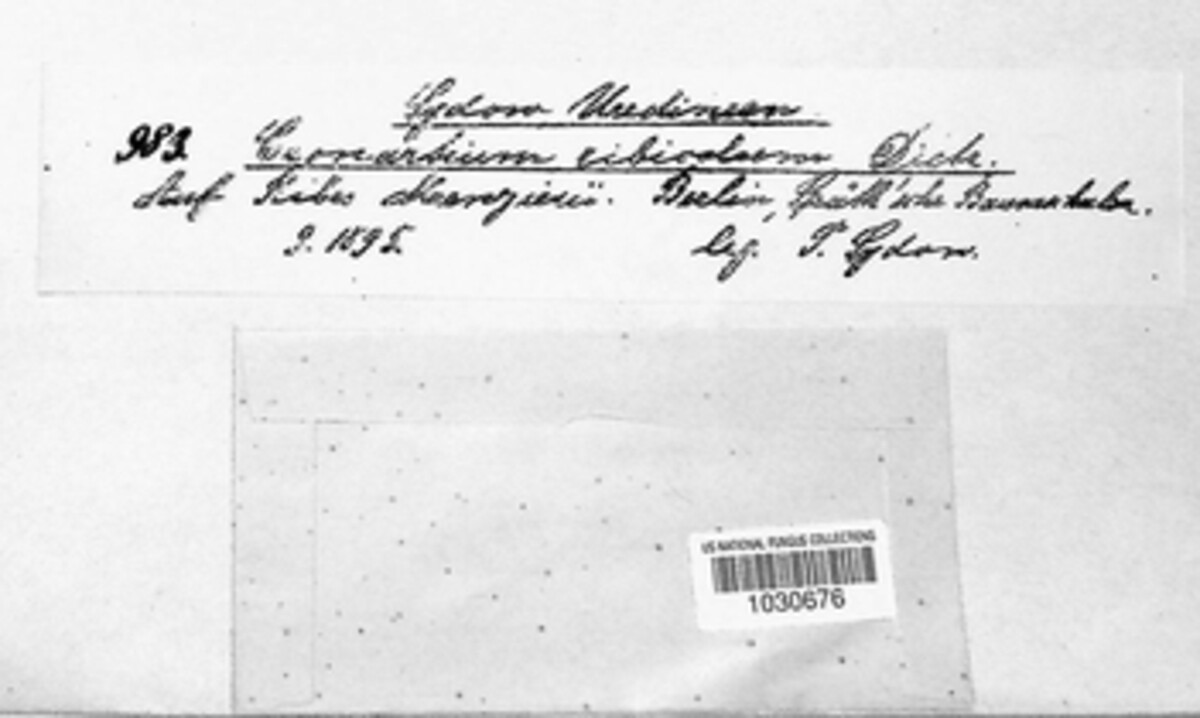 Sydow, Uredineen
983. Cronartium ribicolum Dietr.
Auf Ribes Menziesii. Berlin, Späth'sche Baumschulen.
9. 1895. leg. P. Sydow.
US NATIONAL FUNGUS COLLECTIONS
1030676